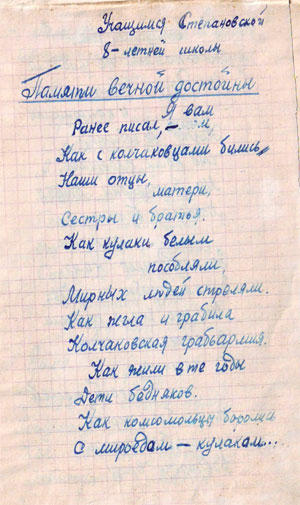 Учащимся Степановской
8-летней школы
Памяти вечной достойны
Я вам
Ранее писал, –
Как с колчаковцами бились,
Наши отцы,
матери,
Сестры и братья.
Как кулаки белым
пособляли,
Мирных людей стреляли.
Как жгла и грабила
Колчановская грабьармия.
Как жили в те годы
Дети бедняков.
Как комсомольцы боролись
С мироедам – кулакам...